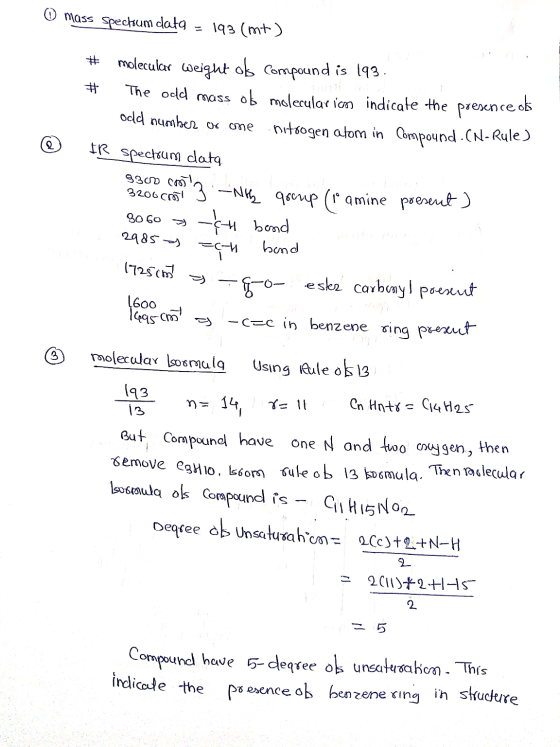 ① Mass spectrum data = 193 (m+)
# molecular weight of Compound is 193.
# The odd mass of molecular ion indicate the presence of
odd number or one nitrogen atom in Compound. (N-Rule)
② IR spectrum data
3300 cm⁻¹
3200 cm⁻¹ } -NH₂ group (1° amine present)
3060 → -C-H bond
2985 → =C-H bond
1725 cm⁻¹ ⇒ -C-O- ester carbonyl present
O
1600
1495 cm⁻¹ ⇒ -C=C in benzene ring present
③ molecular formula Using Rule of 13
193
13
n= 14, r= 11 CnHn+r = C14H25
But Compound have one N and two oxygen, then
remove C3H10. from rule of 13 formula. Then molecular
formula of Compound is - C11H15NO2
Degree of Unsaturation = 2(C)+2+N-H
2
= 2(11)+2+1-15
2
= 5
Compound have 5-degree of unsaturation. This
indicate the presence of benzene ring in structure